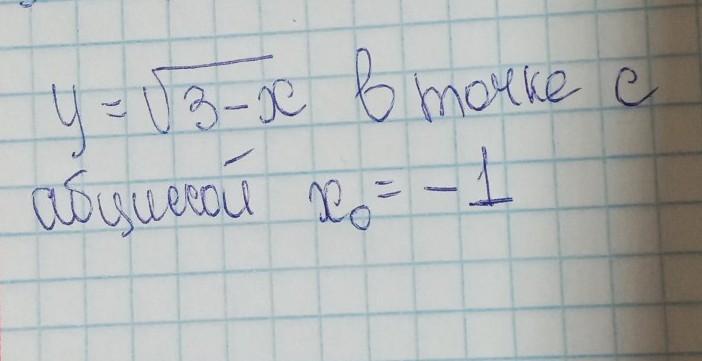 y = √3-x в точке с
абциссой x₀ = -1